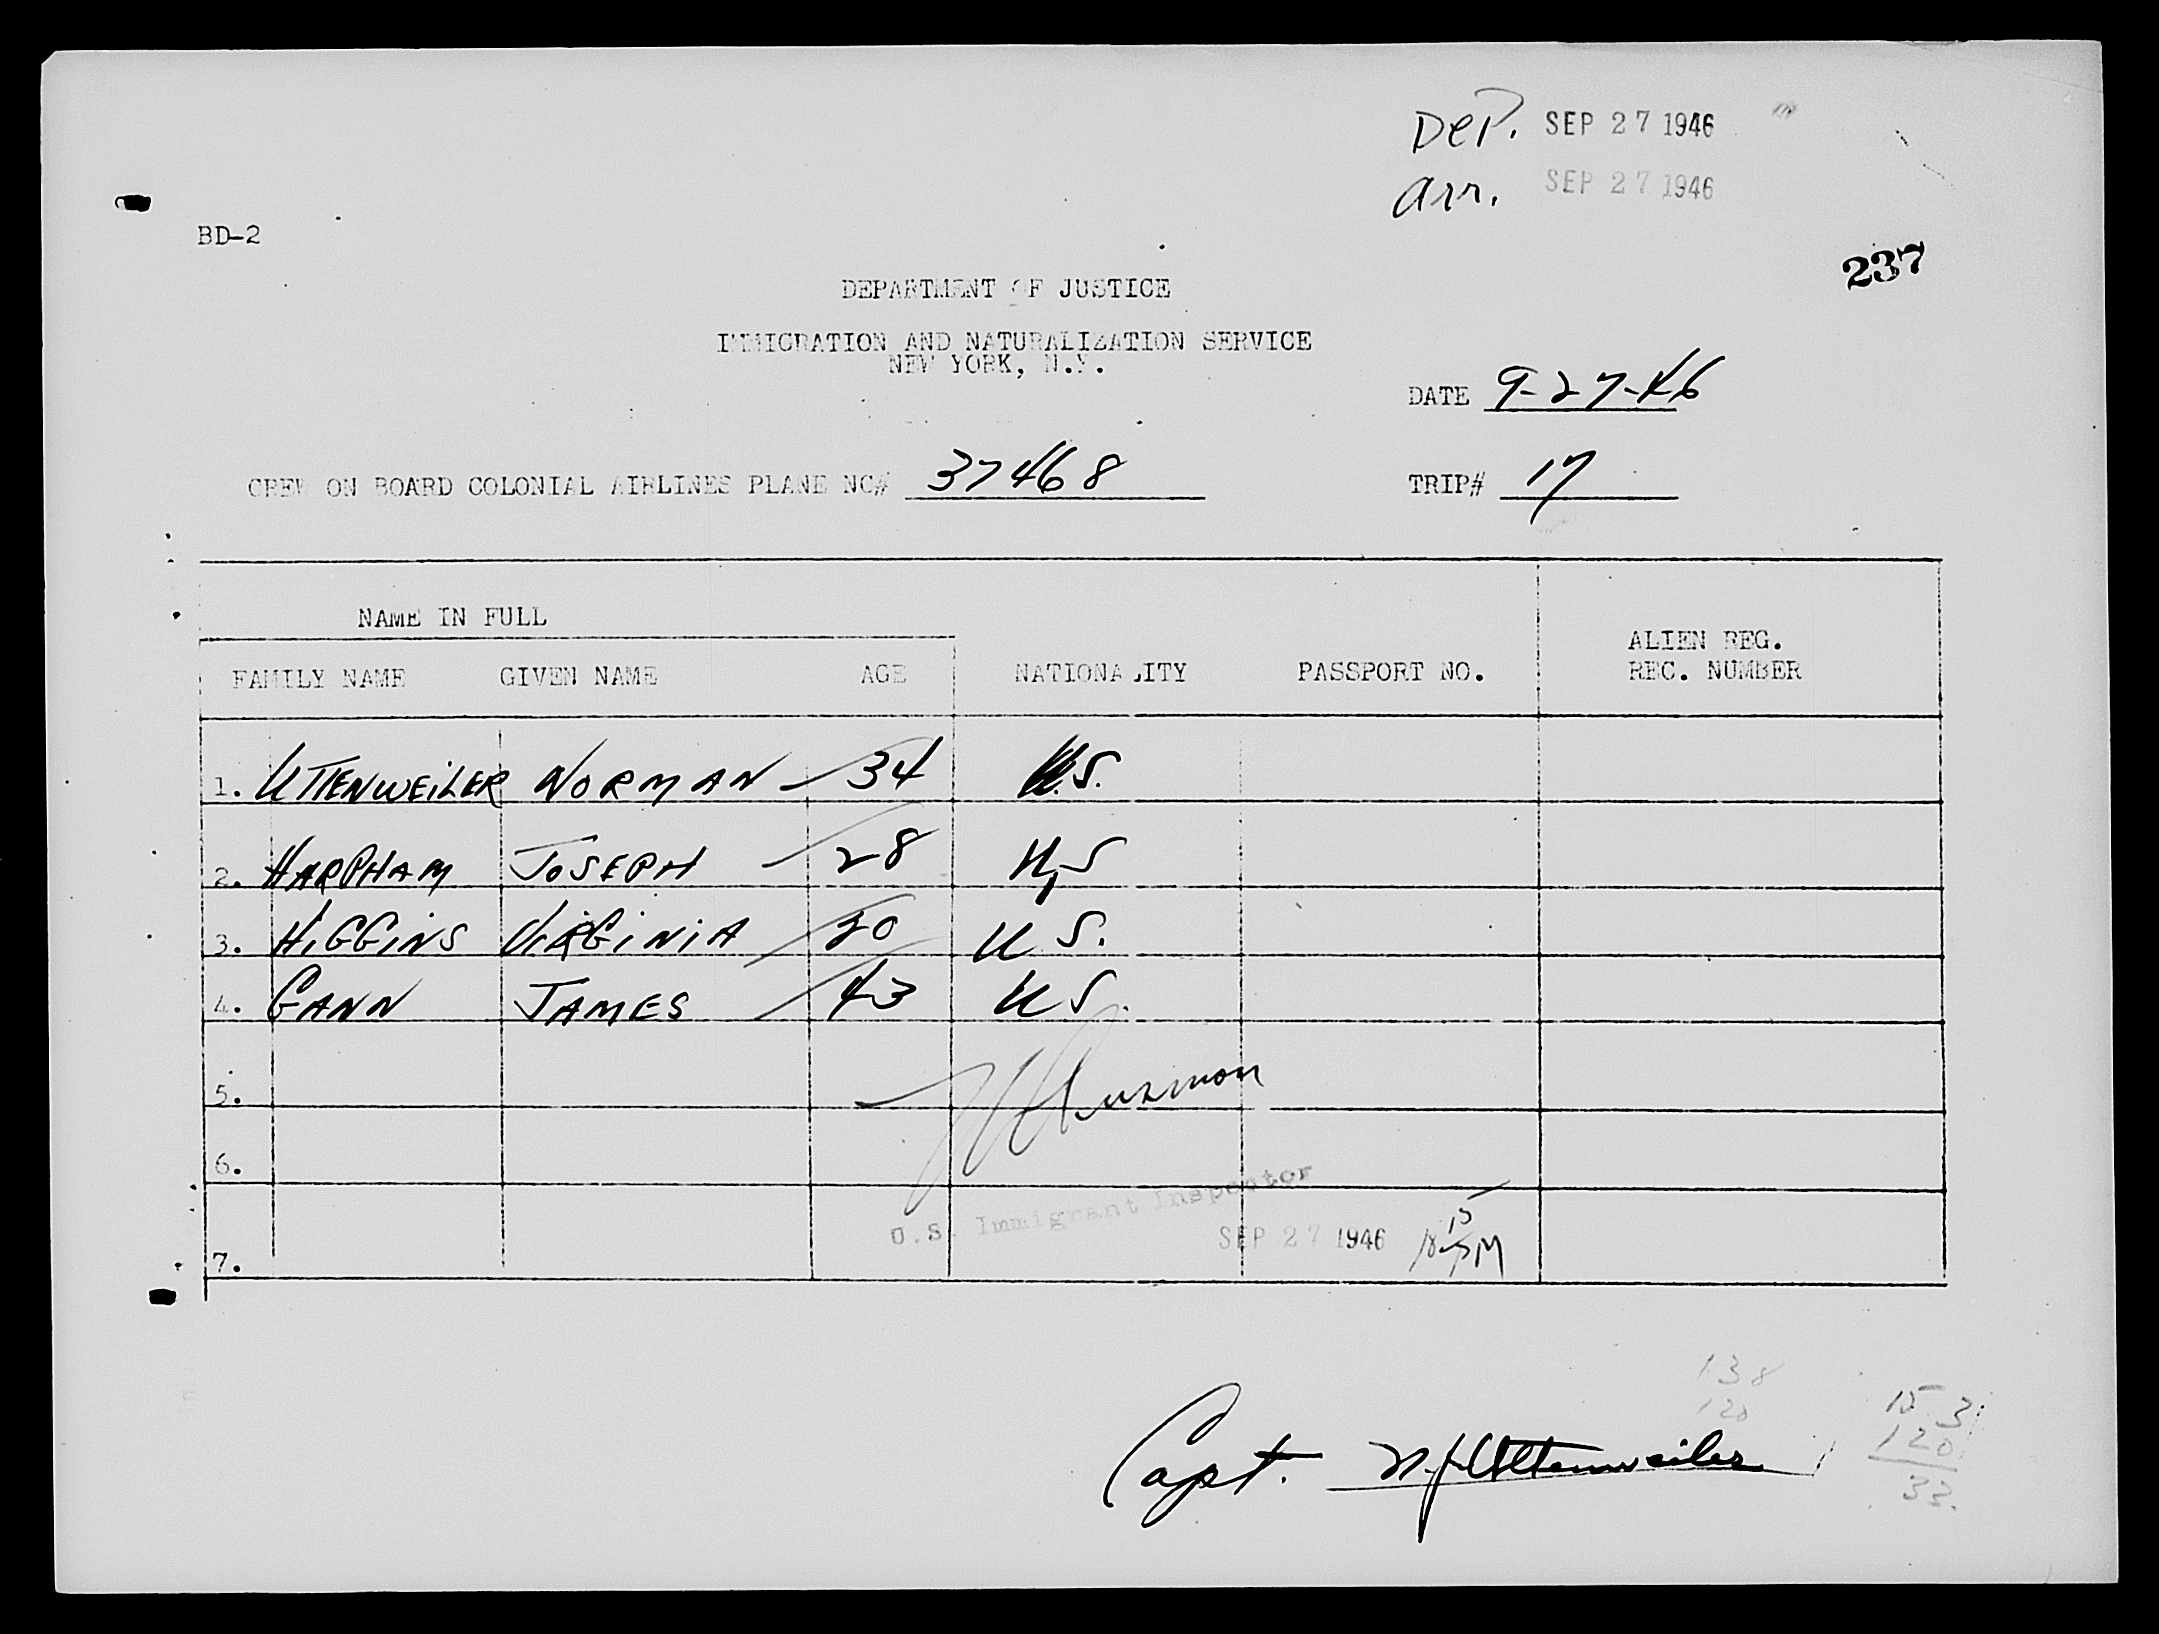 DEP. SEP 27 1946
arr. SEP 27 1946
BD-2
237
DEPARTMENT OF JUSTICE
IMMIGRATION AND NATURALIZATION SERVICE
NEW YORK, N.Y.
DATE 9-27-46
CREW ON BOARD COLONIAL AIRLINES PLANE NC# 37468 TRIP# 17
NAME IN FULL
FAMILY NAME GIVEN NAME AGE NATIONALITY PASSPORT NO. ALIEN REG. REC. NUMBER
1. UTTENWEILER NORMAN 34 U.S.
2. HARPHAM JOSEPH 28 U.S
3. HIGGINS VIRGINIA 20 U.S.
4. GANN JAMES 43 U.S.
5.
6.
U.S. Immigrant Inspector
SEP 27 1946
7.
138
120
153
120
33
Capt. N J Uttenweiler